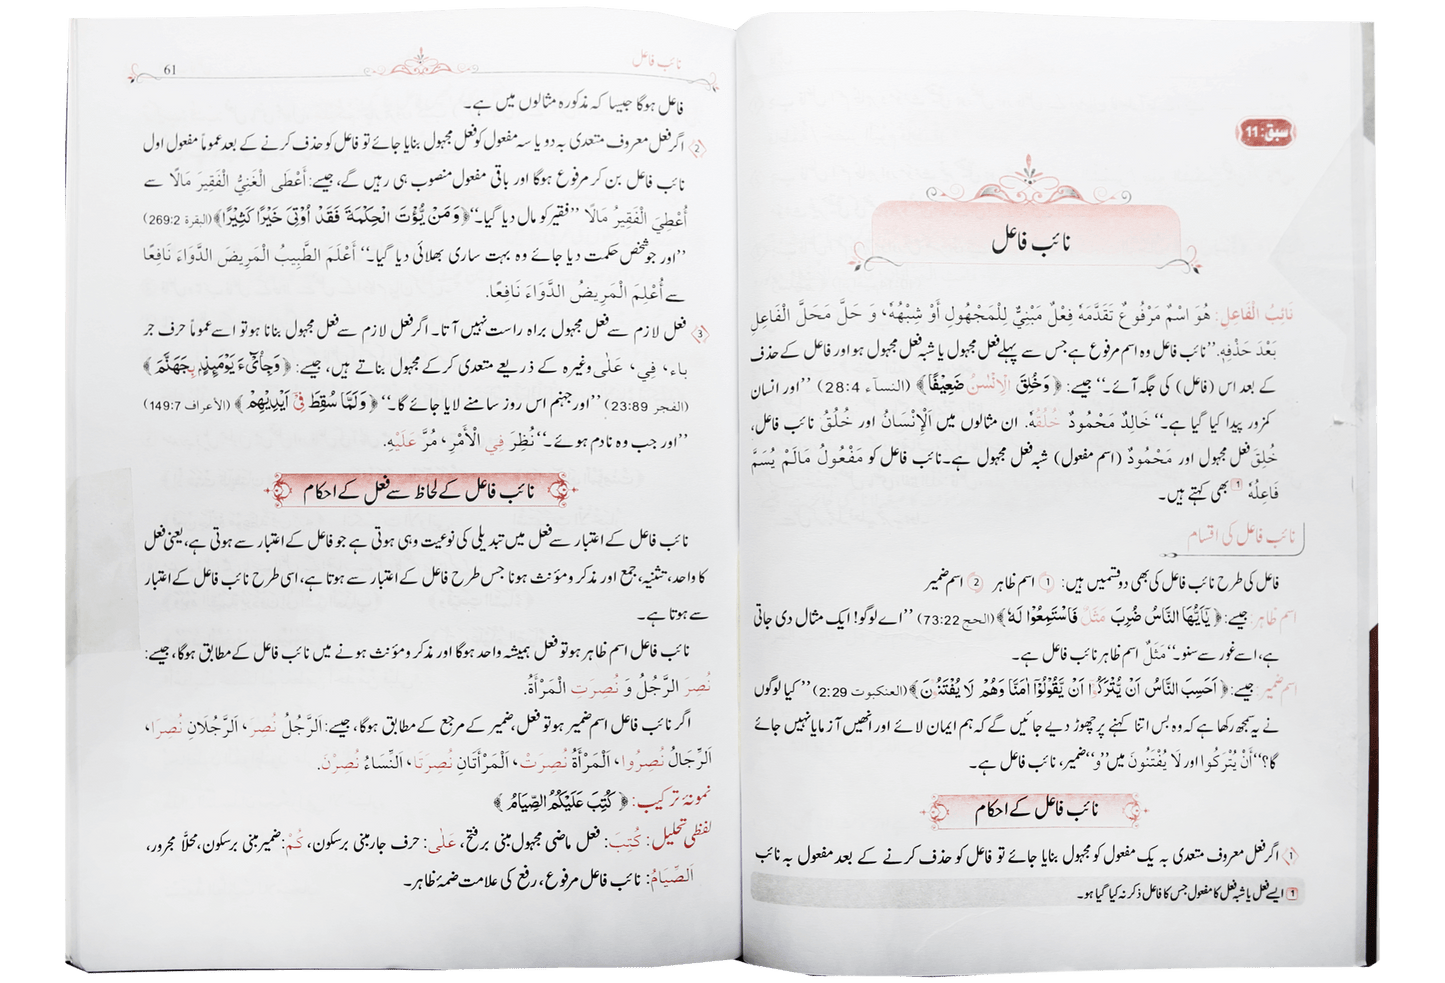 سبق: 11
نائب فاعل
نَائِبُ الْفَاعِلِ: هُوَ اسْمٌ مَرْفُوعٌ تَقَدَّمَهٗ فِعْلٌ مَبْنِيٌّ لِلْمَجْهُولِ أَوْ شِبْهُهٗ، وَ حَلَّ مَحَلَّ الْفَاعِلِ
بَعْدَ حَذْفِهٖ. ’’نائب فاعل وہ اسم مرفوع ہے جس سے پہلے فعل مجہول یا شبہ فعل مجہول ہو اور فاعل کے حذف
کے بعد اس (فاعل) کی جگہ آئے۔‘‘ جیسے: ﴿وَخُلِقَ الْاِنْسٰنُ ضَعِيْفًا﴾ (النسآء 28:4) ’’اور انسان
کمزور پیدا کیا گیا ہے۔‘‘ خَالِدٌ مَحْمُودٌ خُلُقُهٗ. ان مثالوں میں اَلْإِنْسَانُ اور خُلُقُ نائب فاعل،
خُلِقَ فعل مجہول اور مَحْمُودٌ (اسم مفعول) شبہ فعل مجہول ہے۔ نائب فاعل کو مَفْعُولُ مَالَمْ يُسَمَّ
فَاعِلُهٗ 1 بھی کہتے ہیں۔
نائب فاعل کی اقسام
فاعل کی طرح نائب فاعل کی بھی دو قسمیں ہیں: 1 اسم ظاہر 2 اسم ضمیر
اسم ظاہر: جیسے: ﴿يٰٓاَيُّهَا النَّاسُ ضُرِبَ مَثَلٌ فَاسْتَمِعُوْا لَهٗ﴾ (الحج 73:22) ’’اے لوگو! ایک مثال دی جاتی
ہے، اسے غور سے سنو۔‘‘ مَثَلٌ اسم ظاہر نائب فاعل ہے۔
اسم ضمیر: جیسے: ﴿اَحَسِبَ النَّاسُ اَنْ يُّتْرَكُوْٓا اَنْ يَّقُوْلُوْٓا اٰمَنَّا وَهُمْ لَا يُفْتَنُوْنَ﴾ (العنکبوت 2:29) ’’کیا لوگوں
نے یہ سمجھ رکھا ہے کہ وہ بس اتنا کہنے پر چھوڑ دیے جائیں گے کہ ہم ایمان لائے اور انھیں آزمایا نہیں جائے
گا؟‘‘ أَنْ يُتْرَكُوا اور لَا يُفْتَنُونَ میں ’’و‘‘ ضمیر، نائب فاعل ہے۔
نائب فاعل کے احکام
1 اگر فعل معروف متعدی بہ یک مفعول کو مجہول بنایا جائے تو فاعل کو حذف کرنے کے بعد مفعول بہ نائب
1 ایسے فعل یا شبہ فعل کا مفعول جس کا فاعل ذکر نہ کیا گیا ہو۔
نائب فاعل 61
فاعل ہوگا جیسا کہ مذکورہ مثالوں میں ہے۔
2 اگر فعل معروف متعدی بہ دو یا سہ مفعول کو فعل مجہول بنایا جائے تو فاعل کو حذف کرنے کے بعد عموماً مفعول اول
نائب فاعل بن کر مرفوع ہوگا اور باقی مفعول منصوب ہی رہیں گے، جیسے: أَعْطَى الْغَنِيُّ الْفَقِيرَ مَالًا سے
أُعْطِيَ الْفَقِيرُ مَالًا ’’فقیر کو مال دیا گیا۔‘‘ ﴿وَمَنْ يُّؤْتَ الْحِكْمَةَ فَقَدْ اُوْتِيَ خَيْرًا كَثِيْرًا﴾ (البقرة 269:2)
’’اور جو شخص حکمت دیا جائے وہ بہت ساری بھلائی دیا گیا۔‘‘ أَعْلَمَ الطَّبِيبُ الْمَرِيضَ الدَّوَاءَ نَافِعًا
سے أُعْلِمَ الْمَرِيضُ الدَّوَاءَ نَافِعًا.
3 فعل لازم سے فعل مجہول براہ راست نہیں آتا۔ اگر فعل لازم سے فعل مجہول بنانا ہو تو اسے عموماً حرف جر
باء، فِي، عَلٰى وغیرہ کے ذریعے متعدی کر کے مجہول بناتے ہیں، جیسے: ﴿وَجِايْٓءَ يَوْمَىِٕذٍۭ بِجَهَنَّمَ﴾
(الفجر 23:89) ’’اور جہنم اس روز سامنے لایا جائے گا۔‘‘ ﴿وَلَمَّا سُقِطَ فِيْٓ اَيْدِيْهِمْ﴾ (الأعراف 149:7)
’’اور جب وہ نادم ہوئے۔‘‘ نُظِرَ فِي الْأَمْرِ، مُرَّ عَلَيْهِ.
نائب فاعل کے لحاظ سے فعل کے احکام
نائب فاعل کے اعتبار سے فعل میں تبدیلی کی نوعیت وہی ہوتی ہے جو فاعل کے اعتبار سے ہوتی ہے، یعنی فعل
کا واحد، تثنیہ، جمع اور مذکر ومؤنث ہونا جس طرح فاعل کے اعتبار سے ہوتا ہے، اسی طرح نائب فاعل کے اعتبار
سے ہوتا ہے۔
نائب فاعل اسم ظاہر ہو تو فعل ہمیشہ واحد ہوگا اور مذکر ومؤنث ہونے میں نائب فاعل کے مطابق ہوگا، جیسے:
نُصِرَ الرَّجُلُ وَ نُصِرَتِ الْمَرْأَةُ.
اگر نائب فاعل اسم ضمیر ہو تو فعل، ضمیر کے مرجع کے مطابق ہوگا، جیسے: اَلرَّجُلُ نُصِرَ، اَلرَّجُلَانِ نُصِرَا،
اَلرِّجَالُ نُصِرُوا، اَلْمَرْأَةُ نُصِرَتْ، اَلْمَرْأَتَانِ نُصِرَتَا، اَلنِّسَاءُ نُصِرْنَ.
نمونۂ ترکیب: ﴿كُتِبَ عَلَيْكُمُ الصِّيَامُ﴾
لفظی تحلیل: كُتِبَ: فعل ماضی مجہول مبنی بر فتح، عَلٰى: حرف جار مبنی برسکون، كُمْ: ضمیر مبنی برسکون، محلاً مجرور،
اَلصِّيَامُ: نائب فاعل مرفوع، رفع کی علامت ضمۂ ظاہر۔